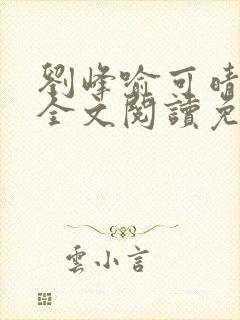 劉峰喻可晴
全文閱讀免
雲小言